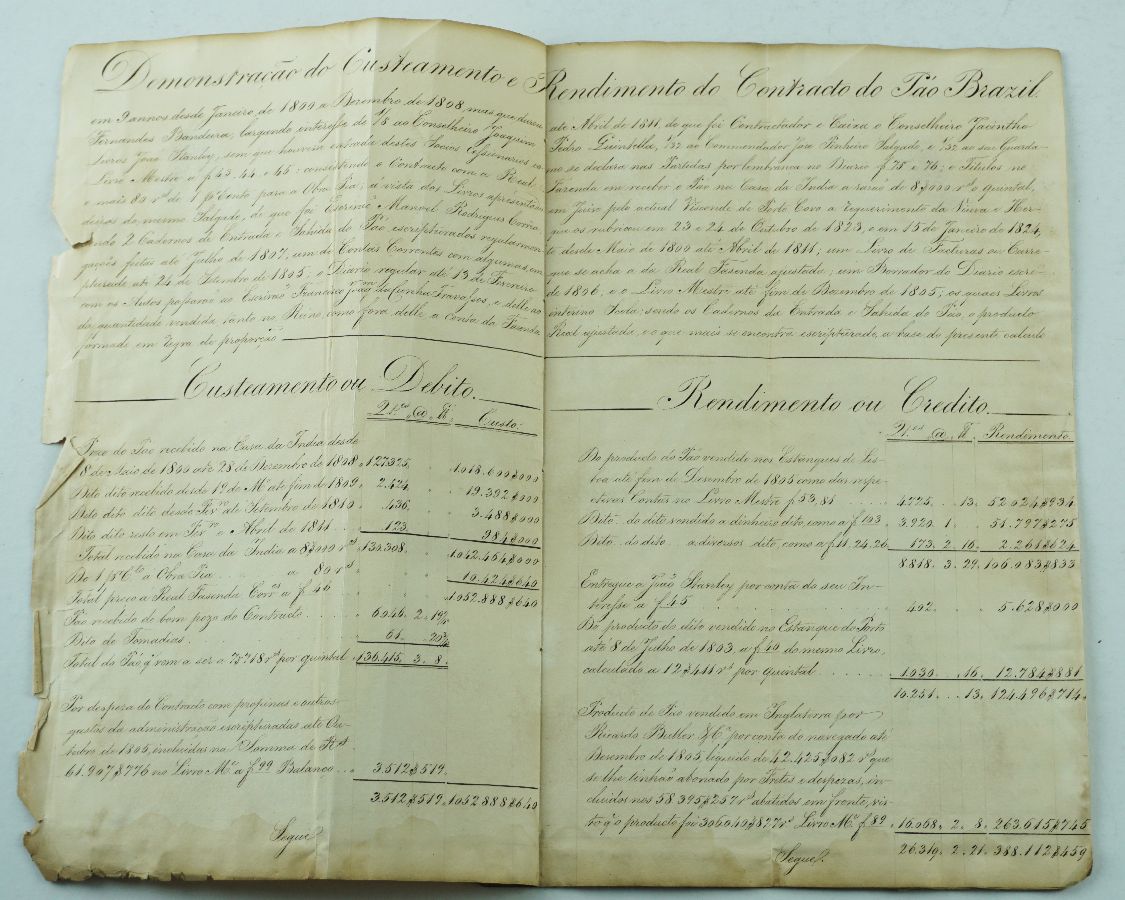 Demonstração do Custeamento e Rendimento do Contracto do Páo Brazil
em 9 annos desde Janeiro de 1800 a Dezembro de 1808, mas que durou
Fernandes Bandeira, largando interesse de 1/8 ao Conselheiro Joaquim
Livros João Stanley, sem que houvesse entrada destes Socios
Livro Mestre a f 43. 44 e 45: consistindo o Contracto com a Real
e mais 80 rs de 1 p Cento para a Obra Pia; á vista dos Livros apresentados
deiros do mesmo Salgado, de que foi Escrivão Manoel Rodrigues
2 Cadernos de Entrada e Sahida do Páo escripturados regularmen-
feitas até Julho de 1807, um de Contas Correntes com algumas,
até 24 de Setembro de 1805; o Diario regular até 13 de Fevereiro
com os Autos passarão ao Escrivão Francisco, e delle
da quantidade vendida tanto no Reino como fóra delle a Conta da Fazenda
formado em regra de proporção
até Abril de 1811, de que foi Contractador e Caixa o Conselheiro Jacintho
Pedro Quintella, 1/32 ao Commendador José Pinheiro Salgado, e 1/32 ao seu Guarda-
mo se declara nas Partidas por lembrança no Diario f 75 e 76; e Titulos no
Fazenda em receber o Páo na Casa da India a rasão de 8$000 rs o quintal,
em Juizo pelo actual Visconde de Porto Covo a requerimento da Viuva e Her-
que os rubricou em 23 e 24 de Outubro de 1823, e em 15 de Janeiro de 1824,
te desde Maio de 1800 até Abril de 1811, um Livro de Facturas ou Carre-
que se acha a da Real Fazenda ajustada; um Borrador do Diario escri-
de 1806, e o Livro Mestre até fim de Dezembro de 1805; os quaes Livros
interino Sotta; sendo os Cadernos da Entrada e Sahida do Páo, o producto
Real ajustada, e o que mais se encontra escripturado, a base do presente calculo
Custeamento ou Debito.
Q.es @ lb. Custo:
Pezo do Páo recebido na Casa da India desde
8 de Maio de 1800 até 28 de Dezembro de 1808 127.325. 1.018.600$000
Dito dito recebido desde 19 do Mº até fim de 1809 2.424. 19.392$000
Dito dito dito desde Fevº até Setembro de 1810 436. 3.488$000
Dito dito resto em Fevº e Abril de 1811 123. 984$000
Total recebido na Casa da India a 8$000 rs 130.308. 1.042.464$000
Do 1 p Cto a Obra Pia a 80 rs 10.424$640
Total preço a Real Fazenda Corrs a f 46 1.052.888$640
Páo recebido de bom pezo do Contracto 6.046. 2. 19
Dito de Tomadias 61. 20
Total do Páo q vem a ser a 7$718 rs por quintal 136.415. 3. 8.
Por despeza do Contracto com propinas e outros
gastos da administração escripturados até Ou-
tubro de 1805, incluidas na Somma de Rs
61.907$776 no Livro Mº a f 99 Balanço 3.512$519.
3.512$519. 1.052.888$640
Segue
Rendimento ou Credito
Q.es @ lb. Rendimento.
Do producto do Páo vendido nos Estanques de Lis-
boa até fim de Dezembro de 1805 como das respe-
ctivas Contas no Livro Mestre f 53, 81 4.725. 13. 52.024$934
Dito do dito vendido a dinheiro dito como a f 103 3.920. 1. 51.797$275
Dito do dito a diversos dito como a f 11. 24. 26 173. 2. 16. 2.261$624
8.818. 3. 29. 106.083$833
Entregue a João Stanley por conta do seu In-
teresse a f 45 402. 5.628$000
Do producto do dito vendido no Estanque do Porto
até 8 de Julho de 1803 a f 49 do mesmo Livro,
calculado a 12$411 rs por quintal 1.030. 16. 12.784$881
10.251. 13. 124.496$714
Producto de Páo vendido em Inglaterra por
Ricardo Buller & Cª por conta do navegado até
Dezembro de 1805, liquido de 42.425$082 rs que
se lhe tinhão abonado por Fretes e despezas, in-
cluidos nos 58.395$257 rs abatidos em frente, vis-
to q o producto foi 306.040$827 rs Livro Mº f 89 16.068. 2. 8. 263.615$745
26.319. 2. 21. 388.112$459
Segue